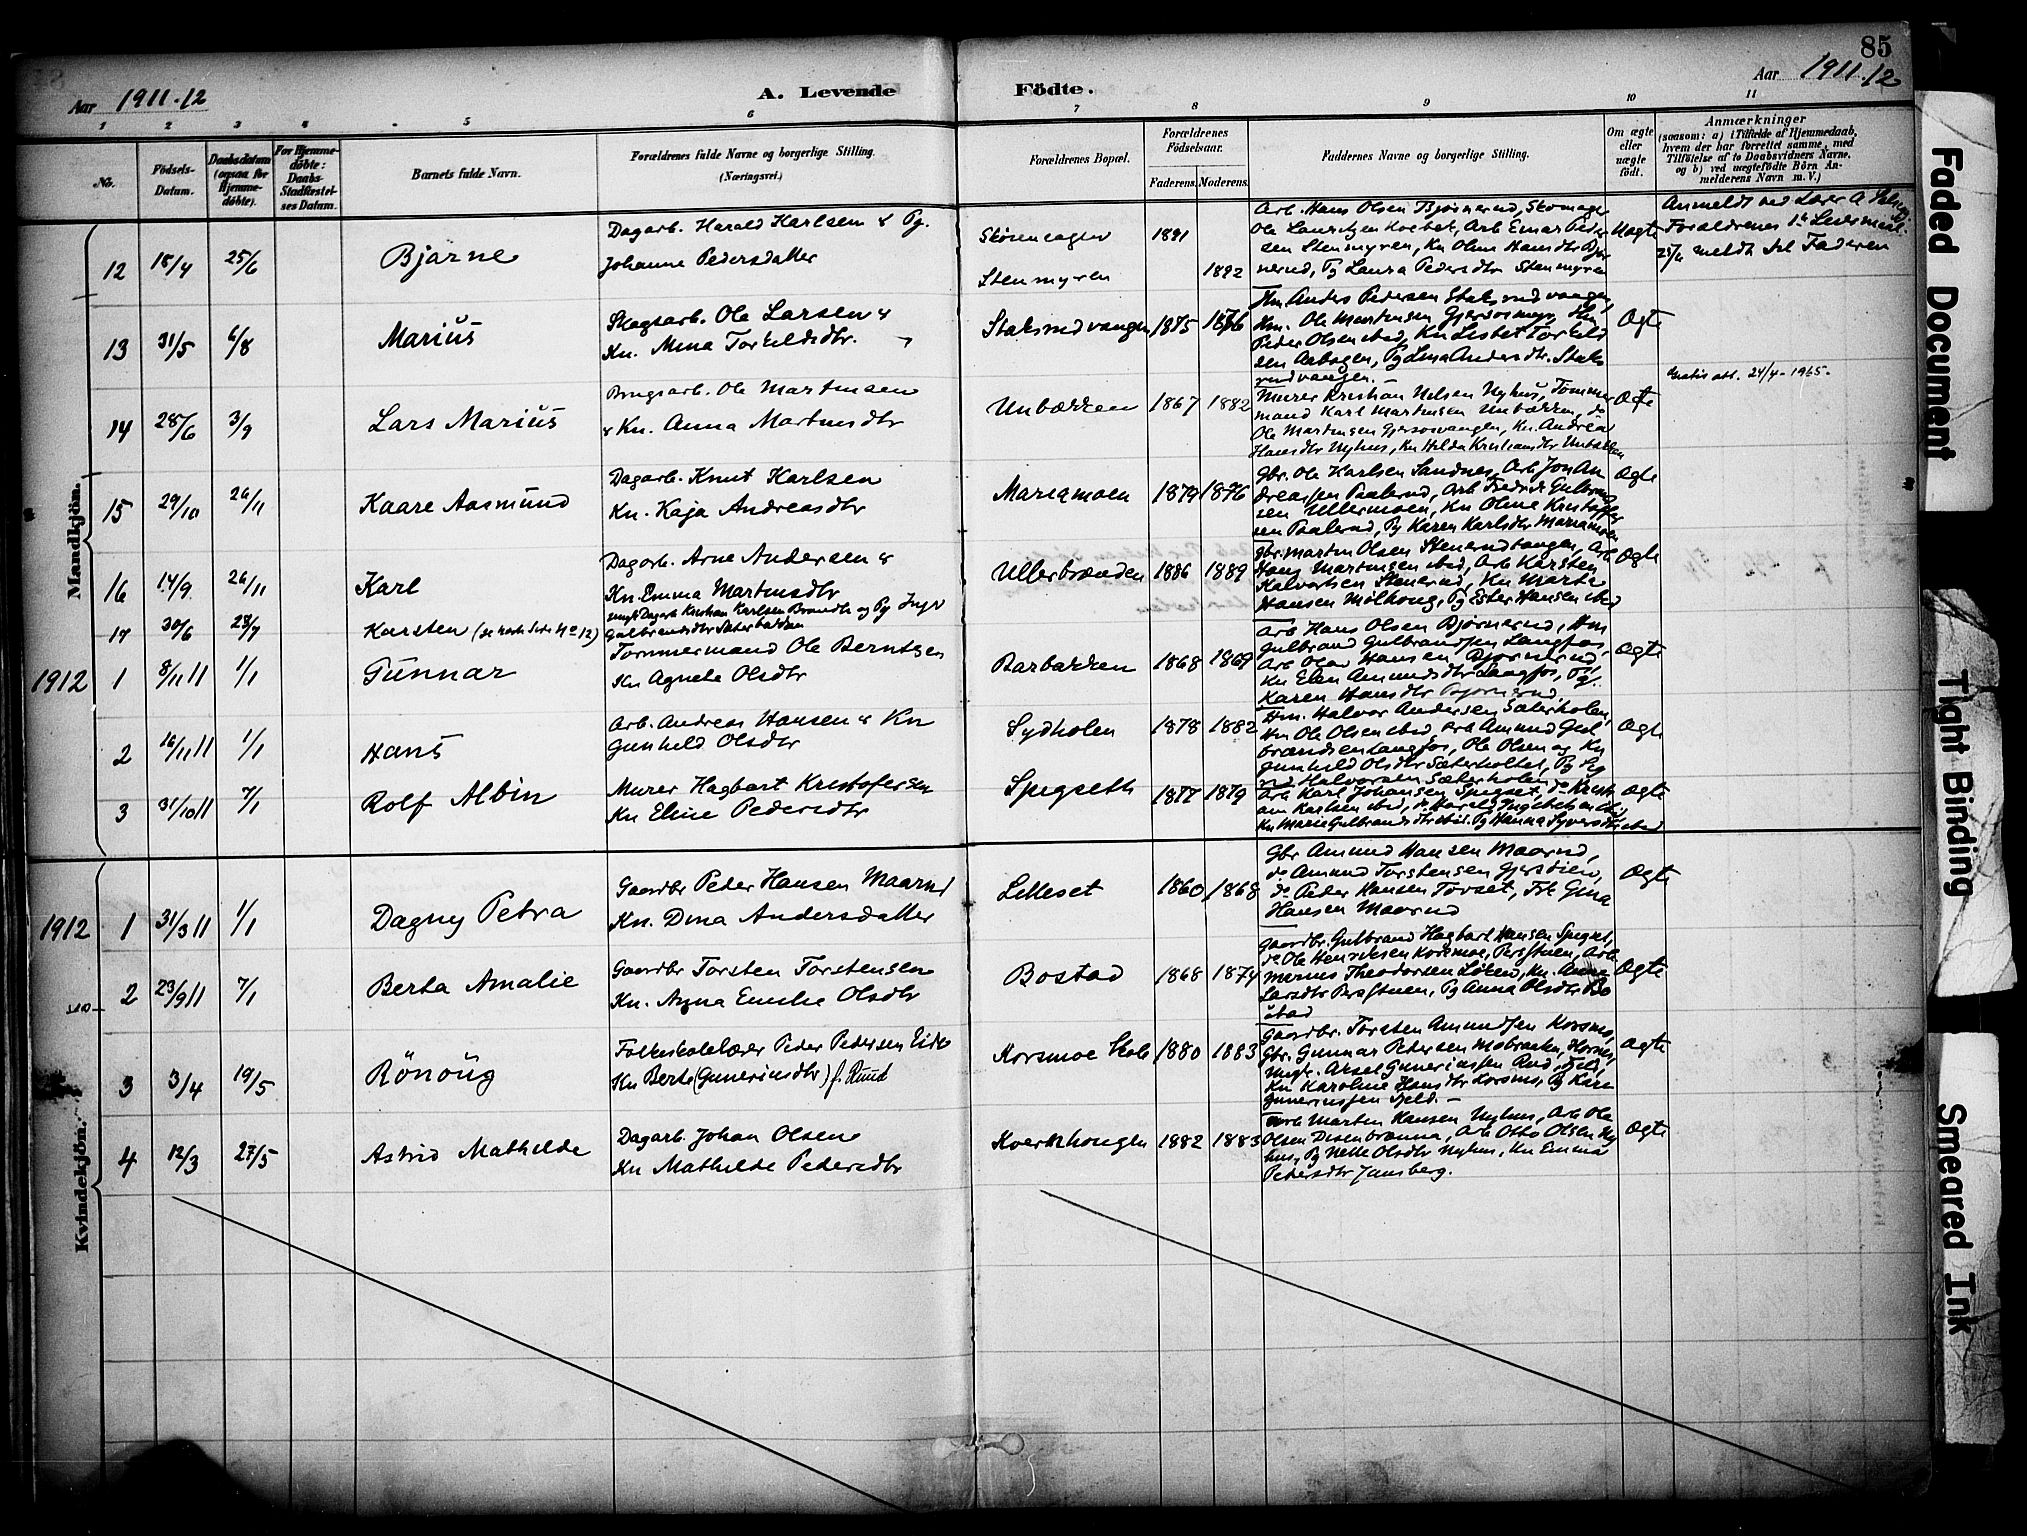 85
Aar 1911.12
A. Levende Födte.
Aar 1911.12
1 2 3 4 5 6 7 8 9 10 11
No.
Födsels-Datum.
Daabsdatum (ogsaa for Hjemme-döbte).
For Hjemme-döbte: Daabs-Stadfæstel-ses Datum.
Barnets fulde Navn.
Forældrenes fulde Navne og borgerlige Stilling.
(Næringsvei.)
Forældrenes Bopæl.
Forældrenes Födselsaar.
Faderens. Moderens.
Faddernes Navne og borgerlige Stilling.
Om ægte eller uægte födt.
Anmærkninger
(saasom: a) i Tilfælde af Hjemmedaab,
hvem der har forrettet samme, med
Tilföielse af to Daabsvidners Navne,
og b) ved uægtefödte Börn An-
melderens Navn m. V.)
Mandkjön.
12 18/4 25/6 Bjarne
Dagarb. Harald Karlsen & Pg.
Johanne Pedersdatter
Stenmyren
1881 1892
Arb. Hans Olsen Bjørnerud, Skomager
Ole Lauritzen Koebet, Arb Einar Peder
sen Stenmyren, Kn Oline Hansdtr Bjør
nerud, Pg Laura Pedersdtr Stenmyren
Uægte
Forældrenes 1ste Leiermaal.
25/6 meldt til Faderen
13 31/5 6/8 Marius
Skogsarb. Ole Larsen &
Kn. Mina Torkildsdtr.
Staksrudvangen 1875 1876
Hm. Anders Pedersen Staksrudvangen,
Hm. Ole Martinsen Gjersosmoen, Hm
Peder Olsen ibid, Kn Lisbet Torkild
sen Aabogen, Pg Lina Andersdtr. Staks
rudvangen.
Ægte
14 28/6 3/9 Lars Marius
Brugsarb. Ole Martinsen
& Kn. Anna Martinsdtr
Unbækken 1867 1882
Murer Kristian Nilsen Nyhus, Tømmer
mand Karl Martinsen Unbækken, do
Ole Martinsen Gjersosvangen, Kn. Andrea
Hansdtr Nyhus, Kn Hilda Kristiansdtr Unbækken
Ægte
Gratis att. 24/4-1965.
15 29/10 26/11 Kaare Aasmund
Dagarb. Knut Karlsen
Kn. Kaja Andreasdtr
Mariamoen 1879 1876
Gbr. Ole Karlsen Sandnes, Arb Jon An
dreassen Paalerud, Arb Fredrik Gulbrand
sen Ullermoen, Kn Oline Kristoffer
sen Paalerud, Pg Karen Karlsdtr Mariamoen
Ægte
16 14/9 26/11 Karl
Dagarb. Arne Andersen &
Kn. Emma Martinsdtr
Ullerbrænden 1886 1889
Gbr. Martin Olsen Stenerudtangen, Arb
Hans Martinsen ibid, Arb Karsten
Halvorsen Stenerud, Kn Marte
Hansen Mølhoug, Pg Ester Hansen ibid
Ægte
17 30/6 23/7 Karsten (se næste Side No 12)
Ungk Dagarb. Kristian Karlsen Brandtr og Pg Inga
Gulbrandsdtr Sæterbakken
1912
1 8/11 11 1/1 Gunnar
Tømmermand Ole Berntsen
Kn Agnete Olsdtr
Barbakken 1868 1869
Arb Hans Olsen Bjørnerud, Hm
Gulbrand Gulbrandsen Langfos,
Arb Olav Hansen Bjørnerud,
Kn Elen Amundsdtr Langfos, Pg
Karen Hansdtr Bjørnerud
Ægte
2 16/11 11 1/1 Hans
Arb. Andreas Hansen & Kn
Gunhild Olsdtr
Sydholen 1878 1882
Hm. Halvor Andersen Sæterholen,
Hm Ole Olsen ibid, Arb Amund Gul
brandsen Langfos, Ole Olsen og Kn
Gunhild Olsdtr Sæterholtet, Pg Sig
rid Halvorsen Sæterholen
Ægte
3 31/10 11 7/1 Rolf Albin
Murer Hagbart Kristofersen
Kn Eline Pedersdtr
Spigseth 1877 1879
Arb Karl Johansen Spigset, do Kristi
an Karlsen ibid, do Harald Ingebretsen ibid,
Kn Marie Gulbrandsdtr ibid. Pg Hanna Syversdtr ibid
Ægte
Kvindekjön.
1912
1 31/3 11 1/1 Dagny Petra
Gaardbr Peder Hansen Maarud
Kn. Dina Andersdatter
Lilleset 1860 1868
Gbr Amund Hansen Maarud,
do Amund Torstensen Gjersøien,
do Peder Hansen Torset, Frk Gina
Hansen Maarud
Ægte
2 23/9 11 7/1 Berta Amalie
Gaardbr Torsten Torstensen
Kn. Anna Emilie Olsdtr
Bostad 1868 1874
Gaardbr. Gulbrand Hagbart Hansen Spigset,
do Ole Henriksen Korsmoe, Persstuen, Arb
Mornes Theodorsen Løken, Kn. Anne
Larsdtr Persstuen, Pg Anna Olsdtr Bo
stad
Ægte
3 3/4 19/5 Rönöug
Folkeskolelærer Peder Pedersen Eide
Kn Berte (Gunerinsdtr) f. Ruud
Korsmoe Skole 1880 1883
Gaardbr. Torsten Amundsen Korsmo,
Gbr. Gunnar Petersen Mobraaten, Hornes,
Ungk. Aksel Guneriussen Rud, Fjeld,
Kn Karoline Hansdtr Korsmo, Pg Kare
Guneriussen Fjeld.-
Ægte
4 12/3 27/5 Astrid Mathilde
Dagarb. Johan Olsen
Kn Mathilde Pedersdtr
Kvernhougen 1882 1883
Arb Martin Hansen Nyhus, Arb Ole
Olsen Disenbrænna, Arb Otto Olsen Ny
hus, Pg Nelle Olsdtr Nyhus, Kn Emma
Petersdtr Jansberg.
Ægte
Faded Document
Tight Binding
Smeared Ink